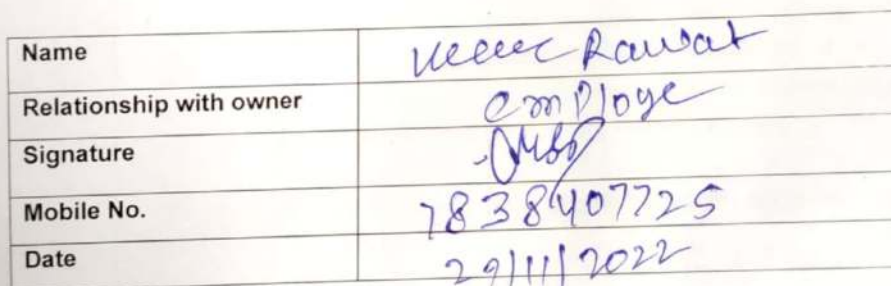 Name Rawat
Relationship with owner employe
Signature
Mobile No. 7838407725
Date 29/11/2022